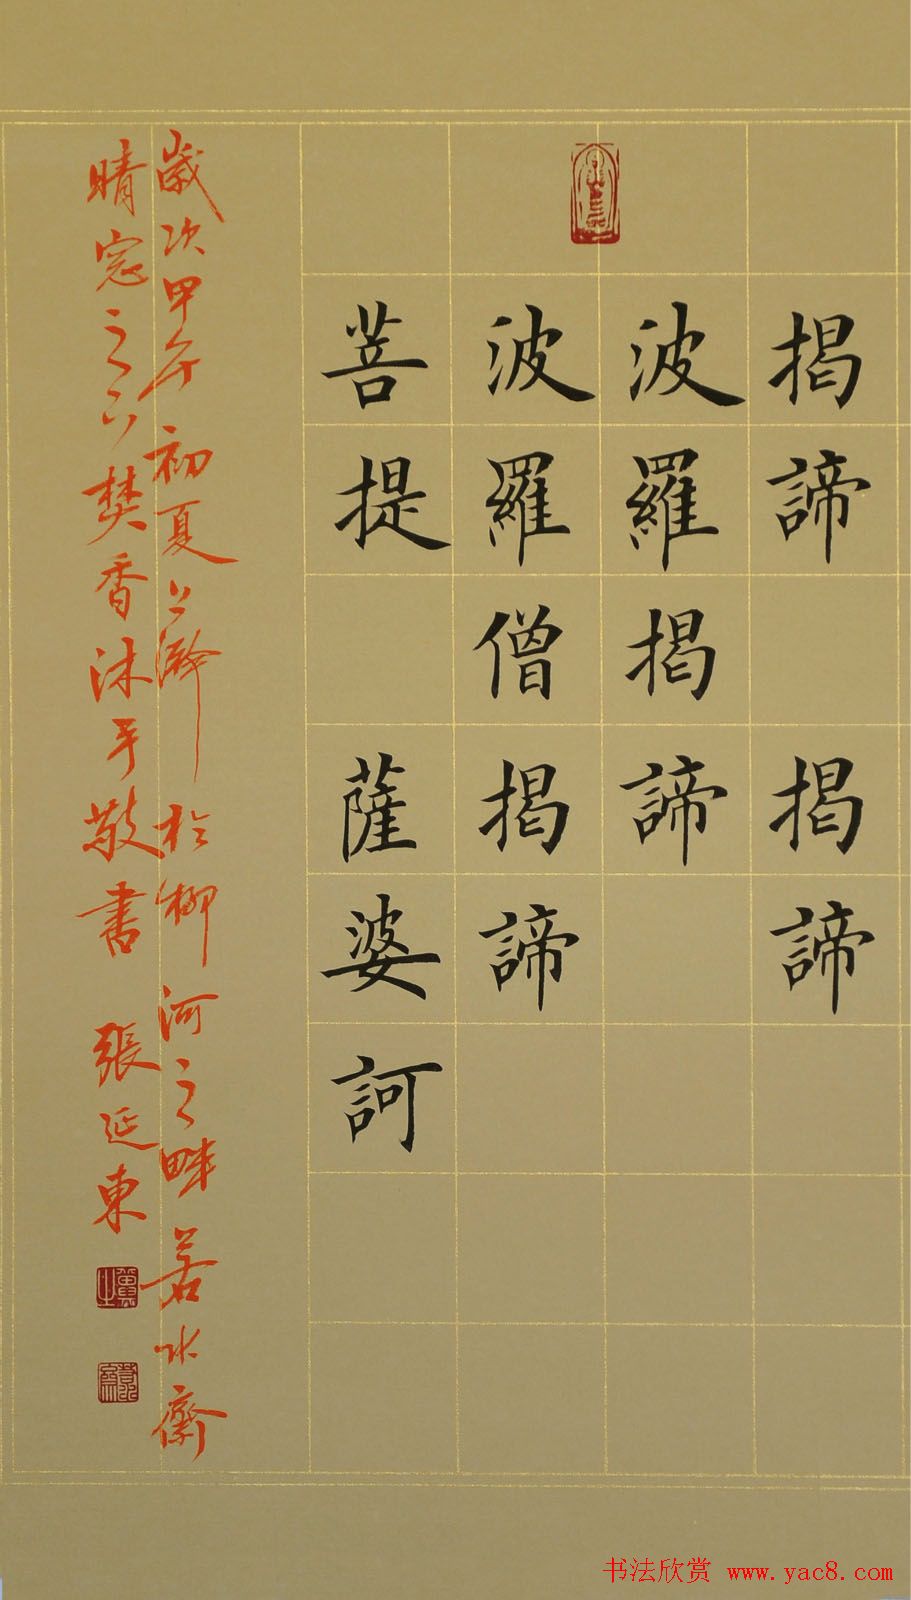 揭諦　揭諦
波羅揭諦
波羅僧揭諦
菩提　薩婆訶
歲次甲午初夏上澣於柳河之畔若水齋
晴窓之下焚香沐手敬書　張延東
书法欣赏 www.yac8.com